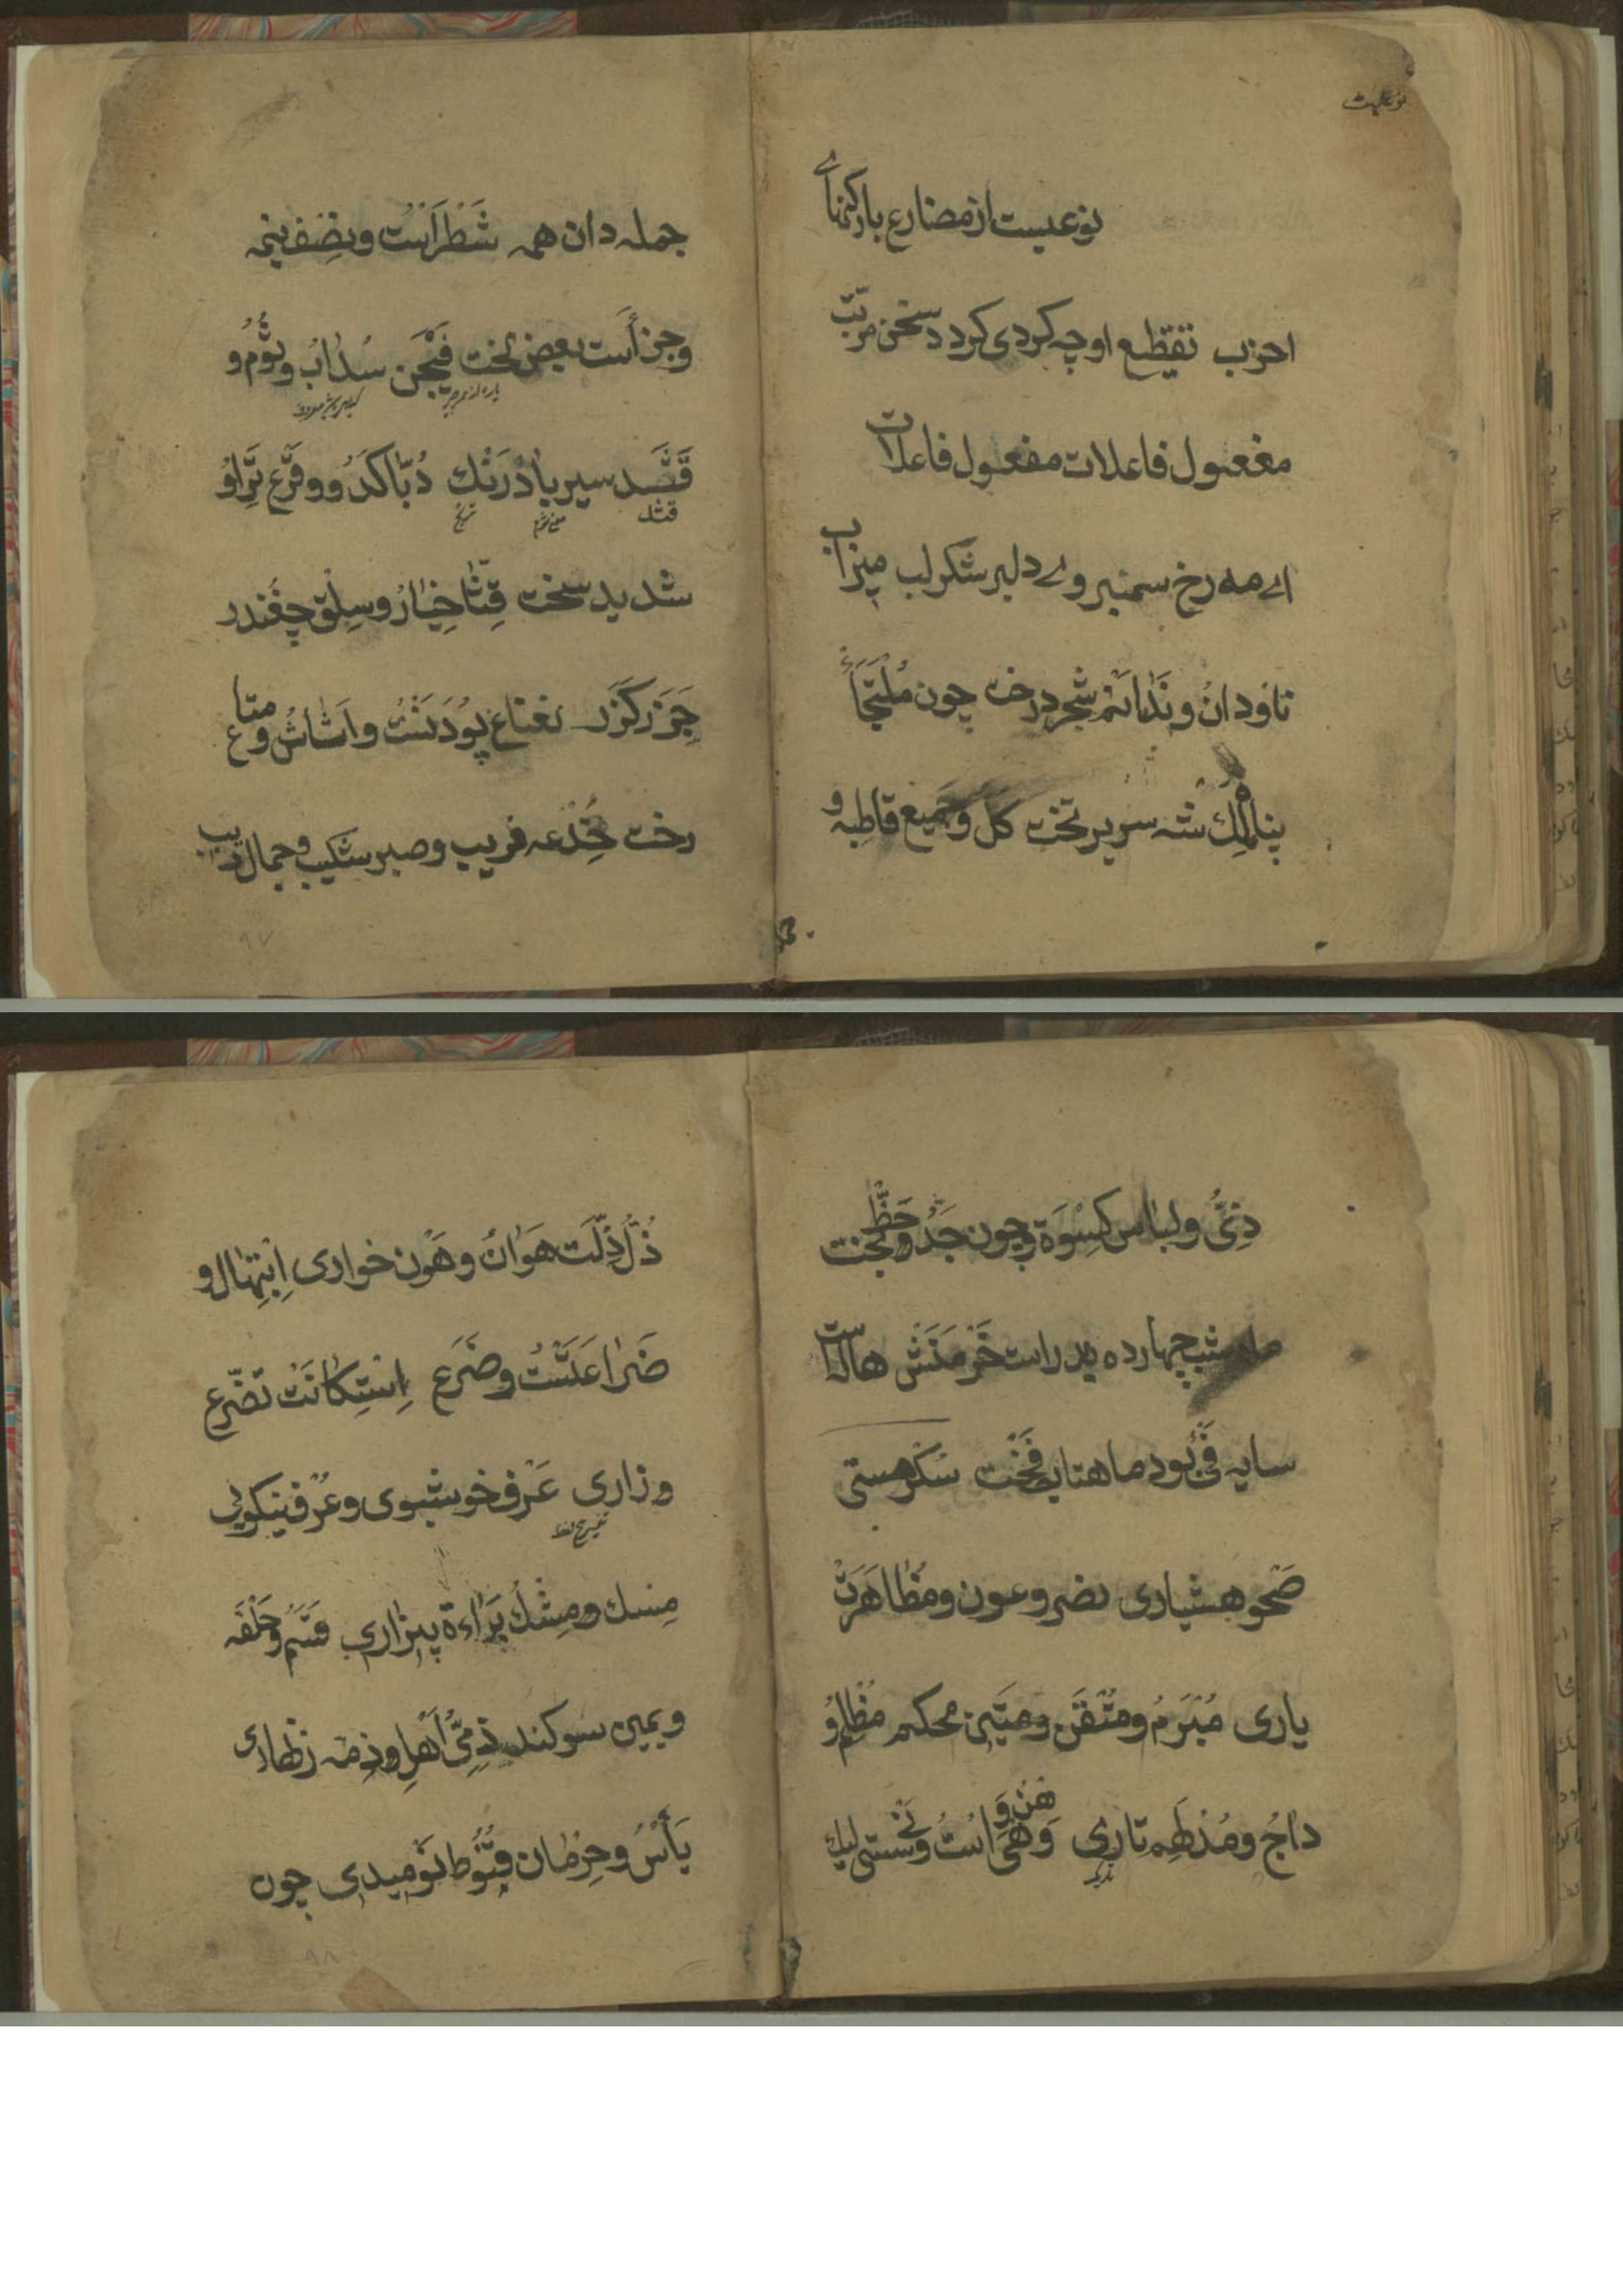 نوعیست از مضارع بارکنهاے
احزب تقطیع او چه کردی کردد سخن مرتب
مفعول فاعلات مفعول فاعلات
اے مه رخ سمنبر وے دلبر شکر لب میزاب
ناودان و ندا نم شجر درخت چون ملتجأ
پناه ملك شه سریر تخت کل و جمیع قاطبه و
جمله دان همه شَطْرَاسْت و نِصْف نیمه
و جزأست بعض لخت فَیْجَن سُدابُ و ثُوْم و
قَثَد سیر بادْرَنْك دُبّا کَدُو و قَرْع تَراوُ
قثد
شدید سخت قِثّا خِیٰارُ و سِلْق چغندر
جَزَر کَزَر نعناع پُوْدَنَسْت و اَثاثُ و متاع
رخت خُدْعه فریب و صبر شکیب و جمال زیب
زِیُّ و لباس کِسْوَة چون جَدّ و حَظّ بخت
ماه شب چهارده بدر است خَرْمَنَش هالاست
سایه فَیْ بُود ماهتاب فَخْت سکر مستی
صَحْو هشیاری نصر و عون و مُظاهَرَتْ
یاری مُبْرَمُ و مُتْقَن و مَتین محکم مُظْلِم و
داجُ و مُدْلَهِم تاری وَهْن و وَهَیَ اسْتُ و سستی لیك
ذُلّ ذِلَّت هَوانُ و هُوْن خواری اِبْتِهال و
ضَراعَتَسْتُ و ضَرَع اِسْتِکانَتْ تضّرع
و زاری عَرْف خوشبوی و عُرْف نیکویی
مِسك و مِشْك بَراءة بیزاری قَسَمُ و حَلْفَه
و یمین سوکند ذِمّیُّ اَهْلِ و ذِمّه زنهاری
یَأْسُ و حِرْمان قُنُوط نومیدی چون